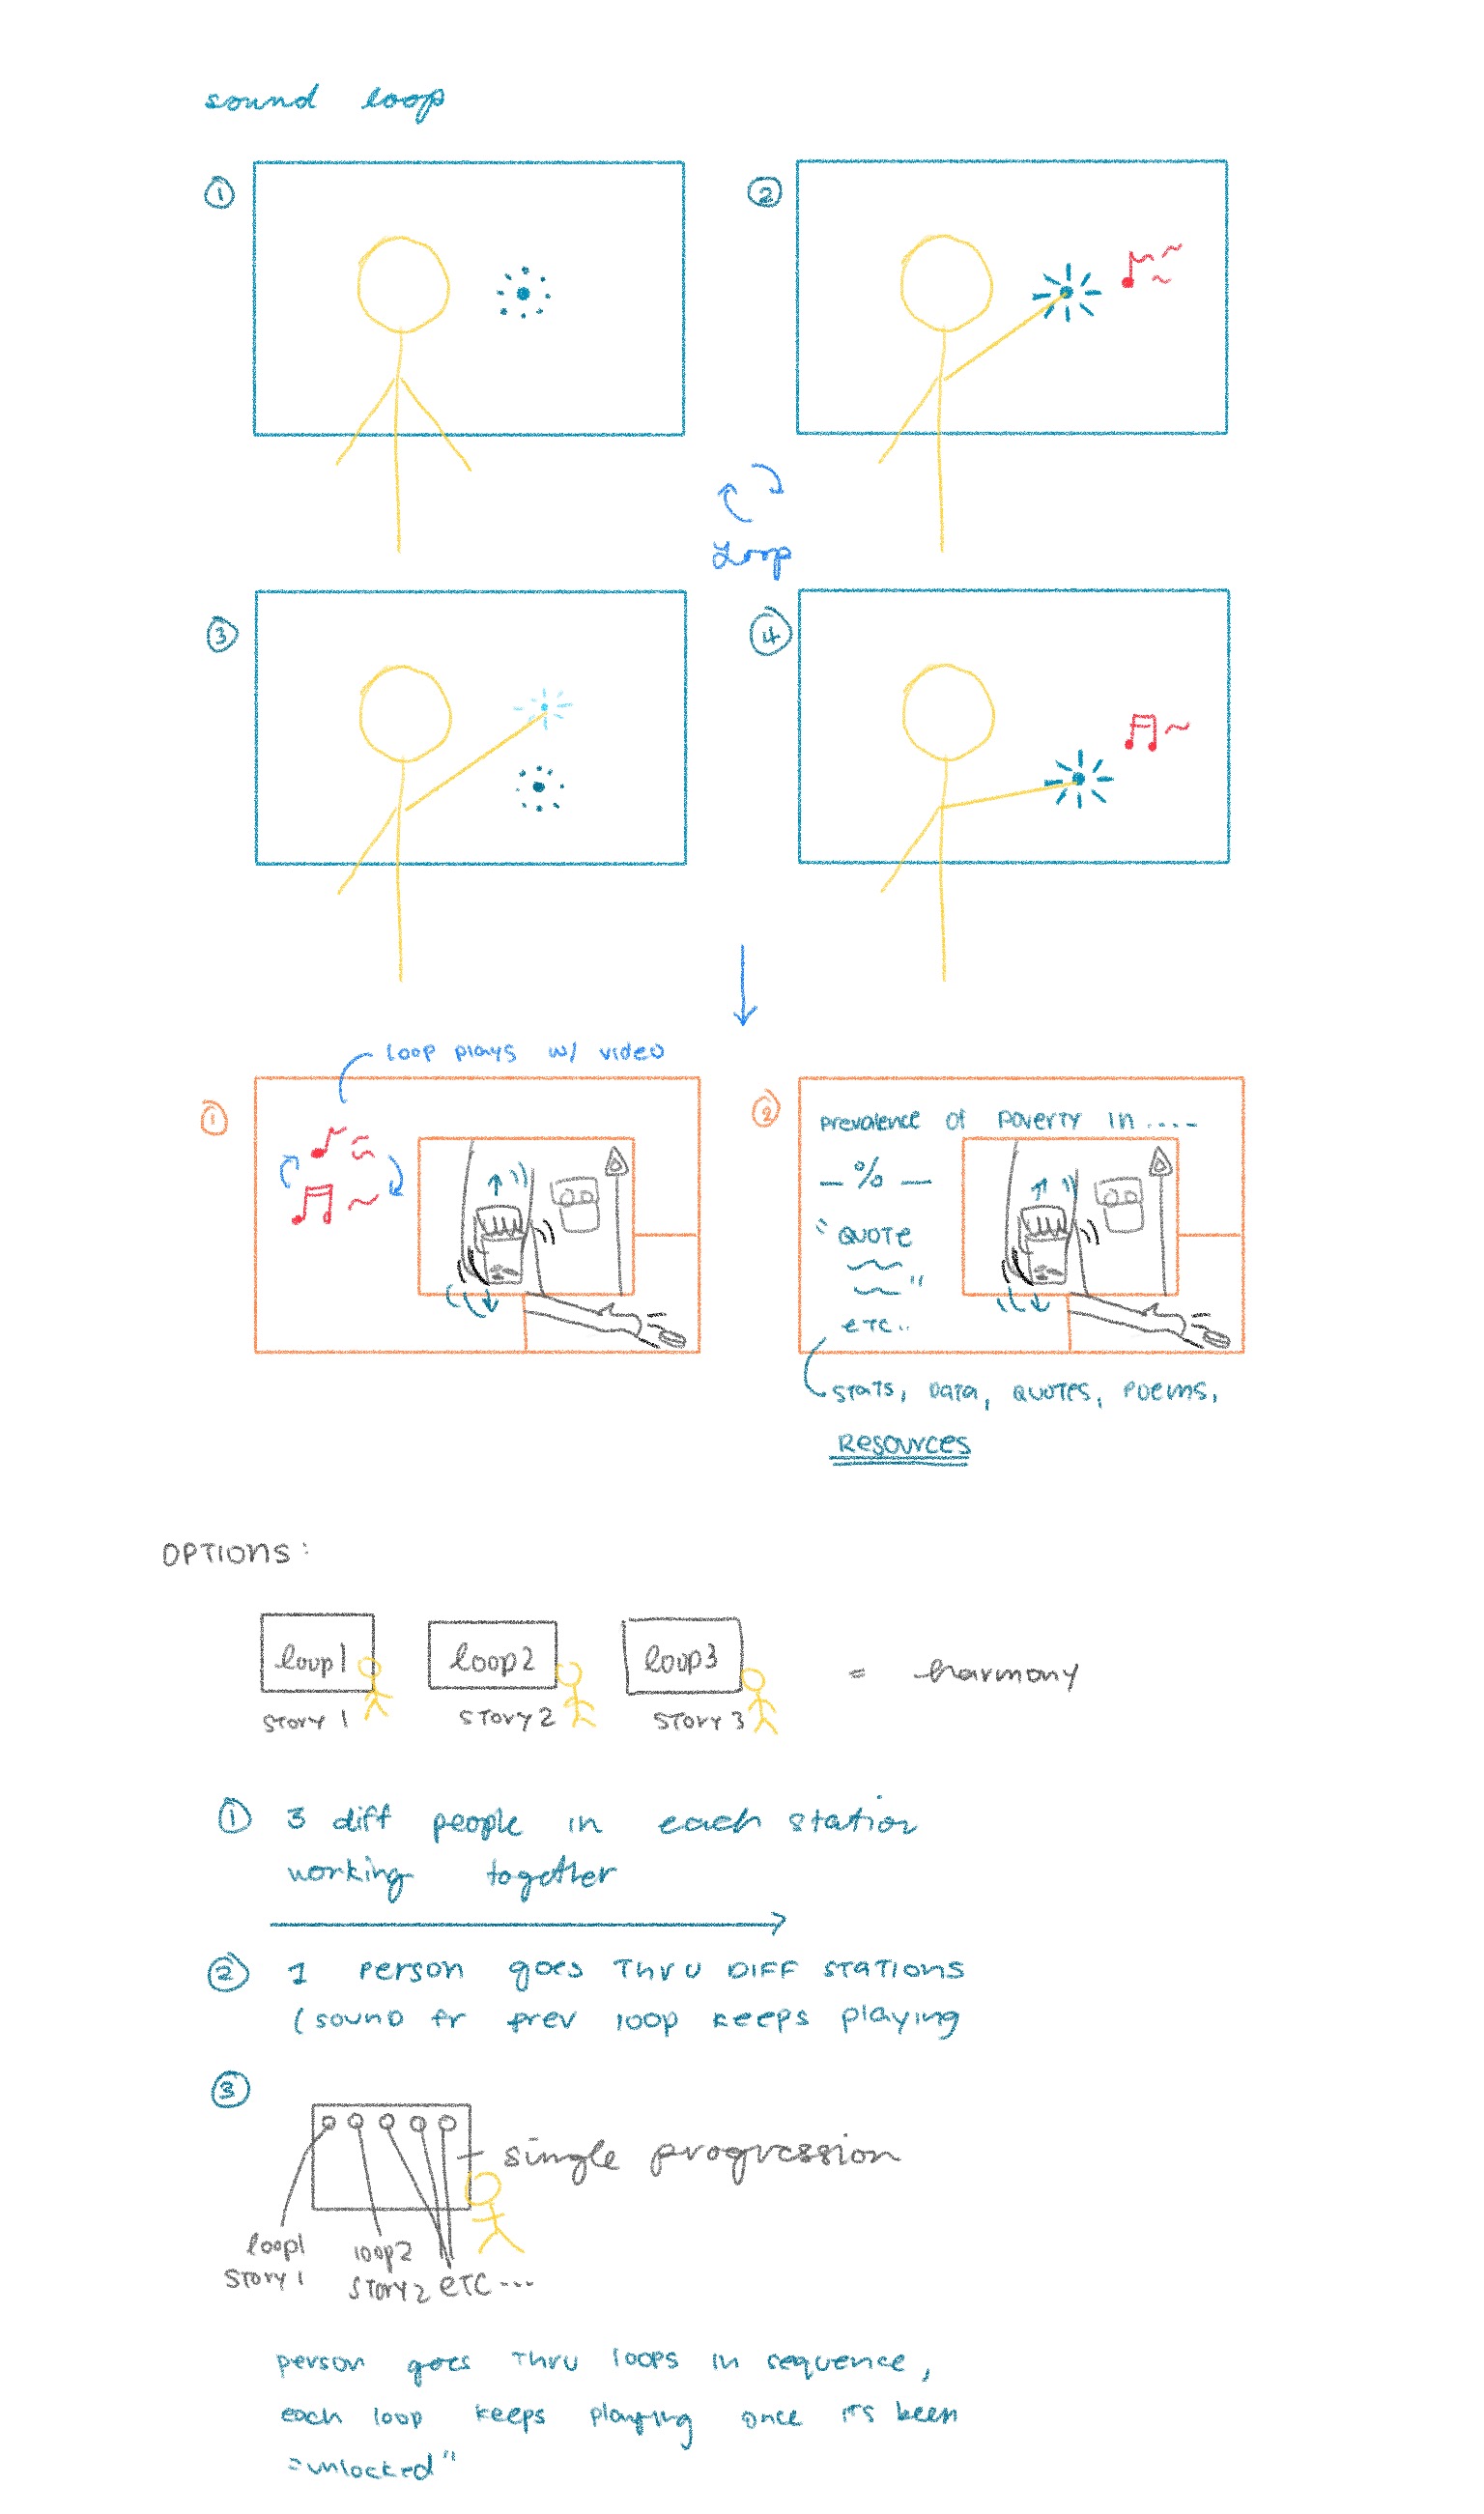 sound loop
1
2
Loop
3
4
Loop plays w/ video
1
2
prevalence of poverty in ....
_ % _
"QUOTE
"
etc..
stats, data, quotes, poems,
Resources
OPTIONS:
loop1
loop2
loop3
= harmony
story 1
story 2
story 3
1 3 diff people in each station
working together
2 1 person goes thru diff stations
(sound fr prev loop keeps playing
3
single progression
loop1
story 1
loop2
story2
etc ...
person goes thru loops in sequence,
each loop keeps playing once its been
"unlocked"